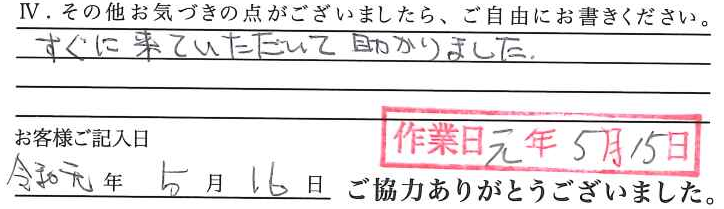 Ⅳ．その他お気づきの点がございましたら、ご自由にお書きください。
すぐに来ていただいて助かりました.
お客様ご記入日
作業日元年5月15日
令和元年5月16日
ご協力ありがとうございました。